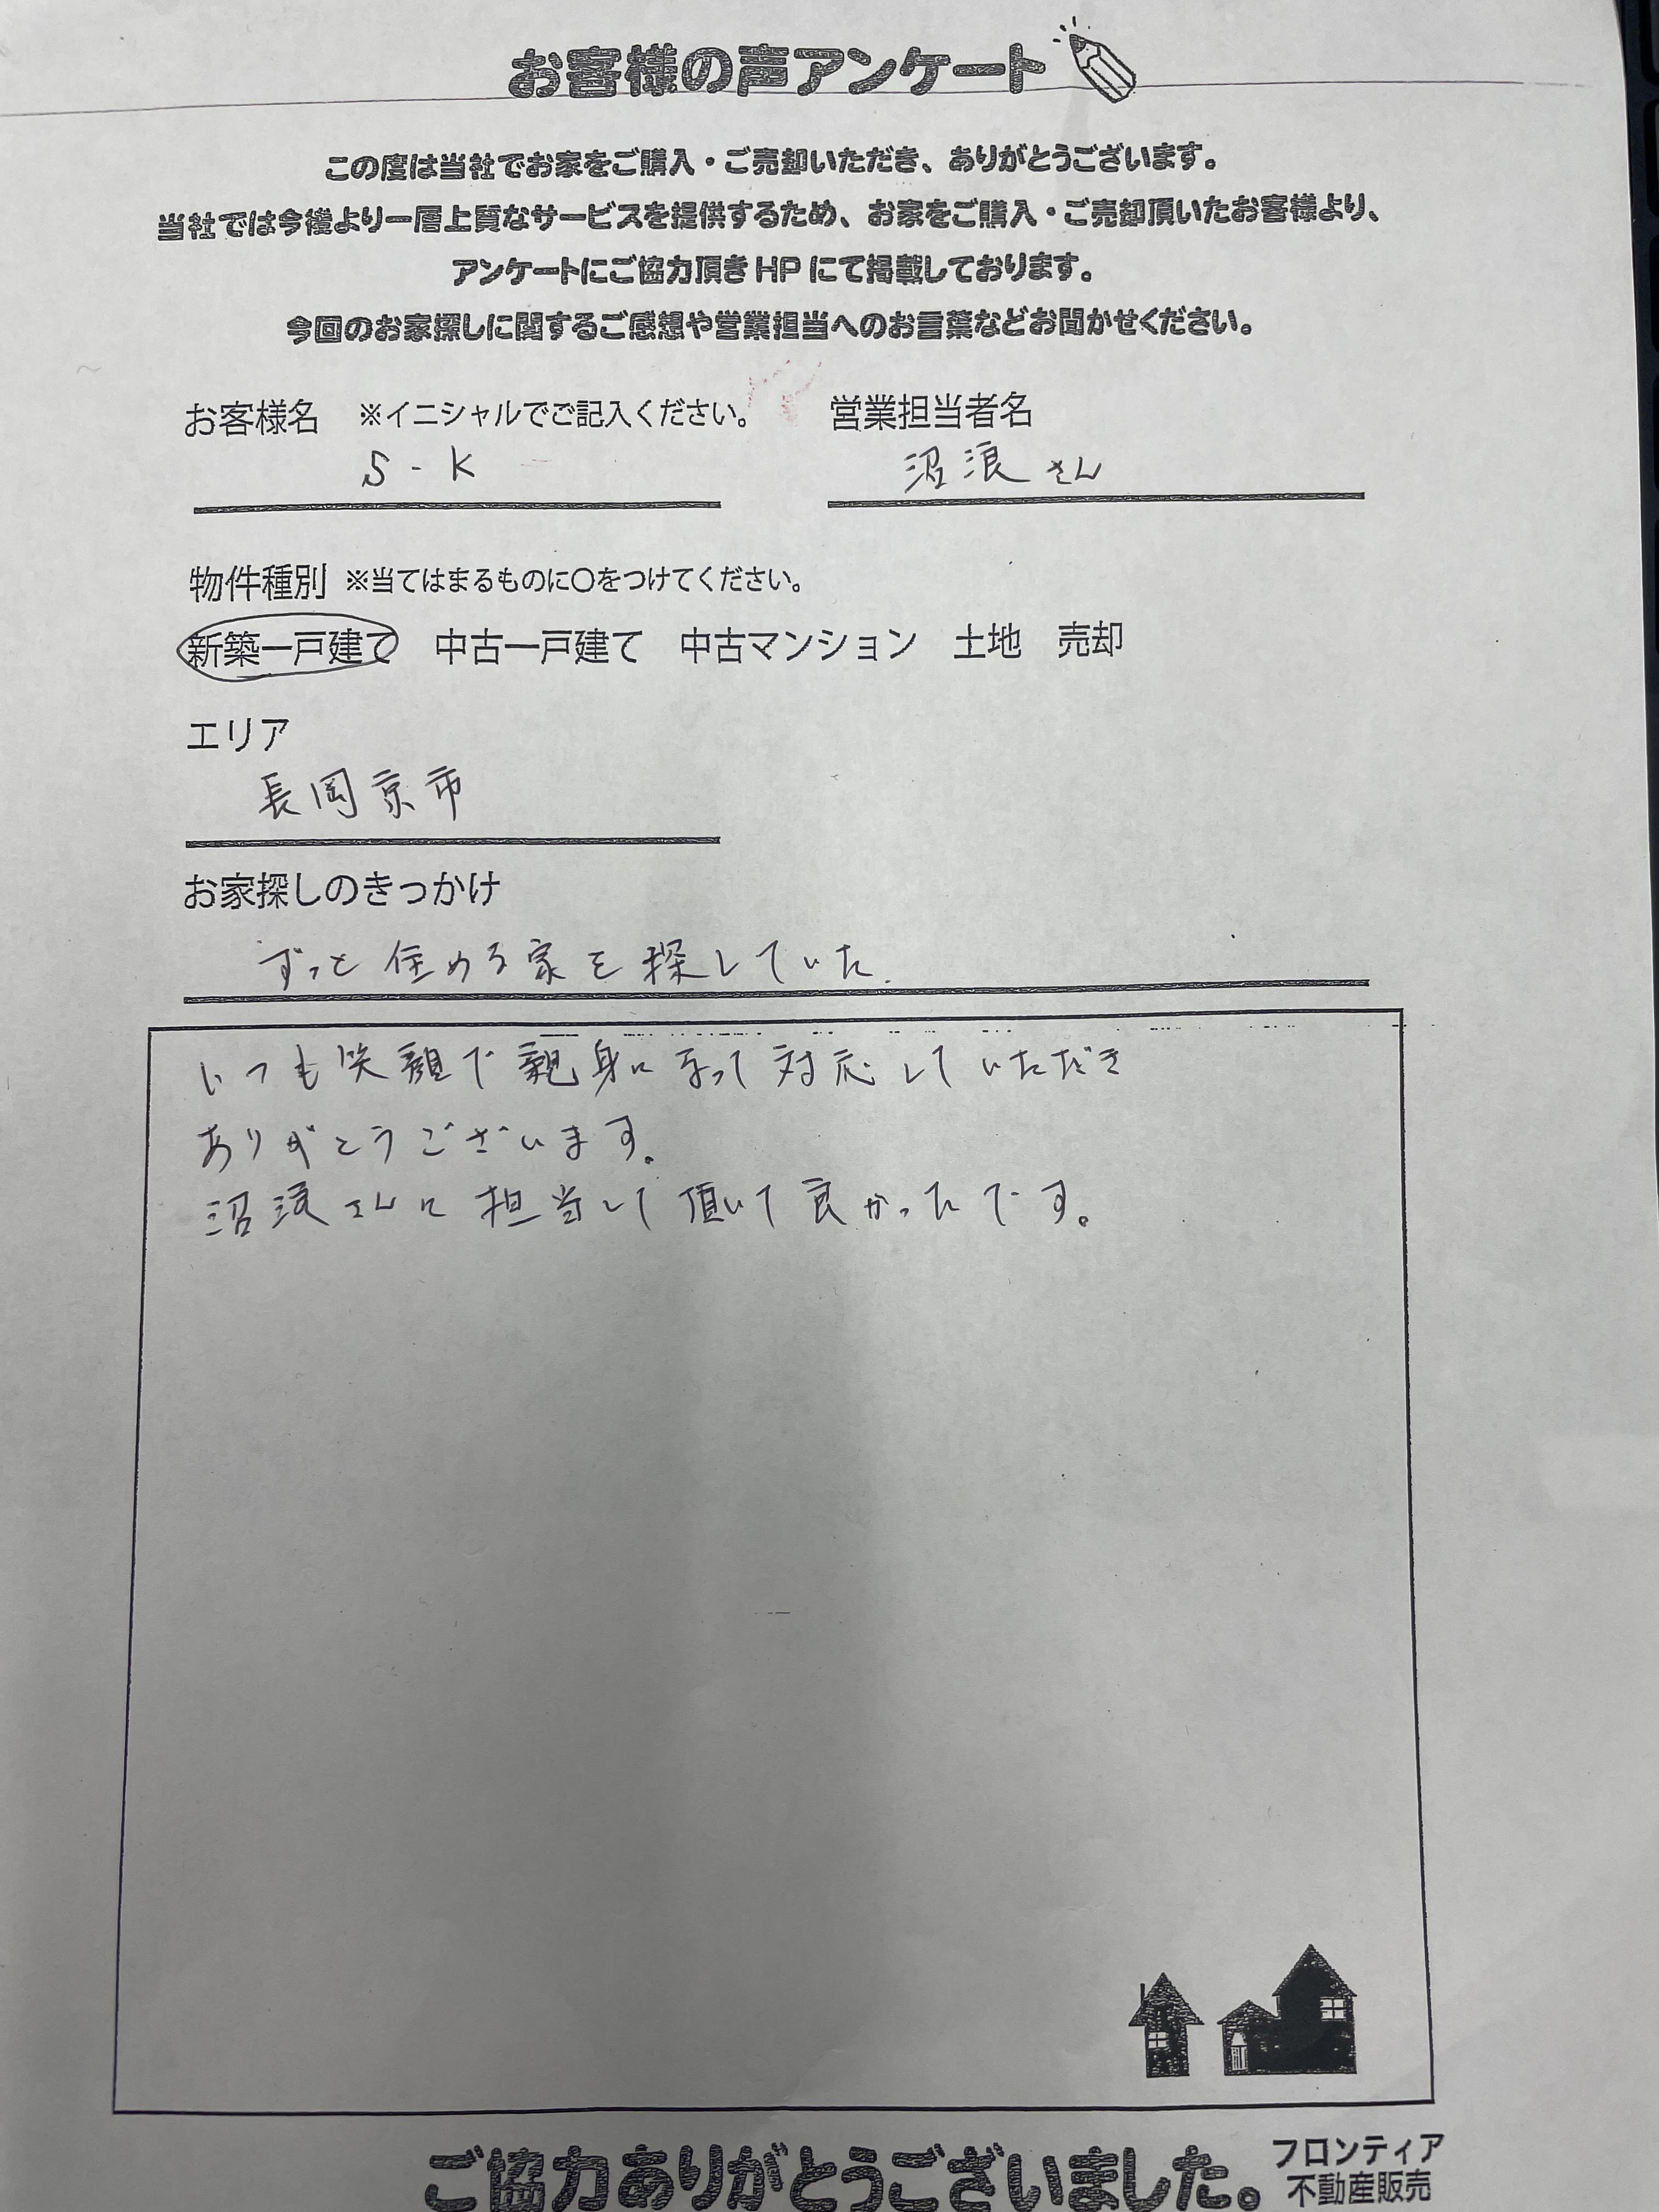 お客様の声アンケート
この度は当社でお家をご購入・ご売却いただき、ありがとうございます。
当社では今後より一層上質なサービスを提供するため、お家をご購入・ご売却頂いたお客様より、
アンケートにご協力頂き HP にて掲載しております。
今回のお家探しに関するご感想や営業担当へのお言葉などお聞かせください。
お客様名 ※イニシャルでご記入ください。 営業担当者名
S - K 沼浪さん
物件種別 ※当てはまるものに〇をつけてください。
新築一戸建て 中古一戸建て 中古マンション 土地 売却
エリア
長岡京市
お家探しのきっかけ
ずっと住める家を探していた.
いつも笑顔で親身になって対応していただき
ありがとうございます。
沼浪さんに担当して頂いて良かったです。
ご協力ありがとうございました。
フロンティア
不動産販売